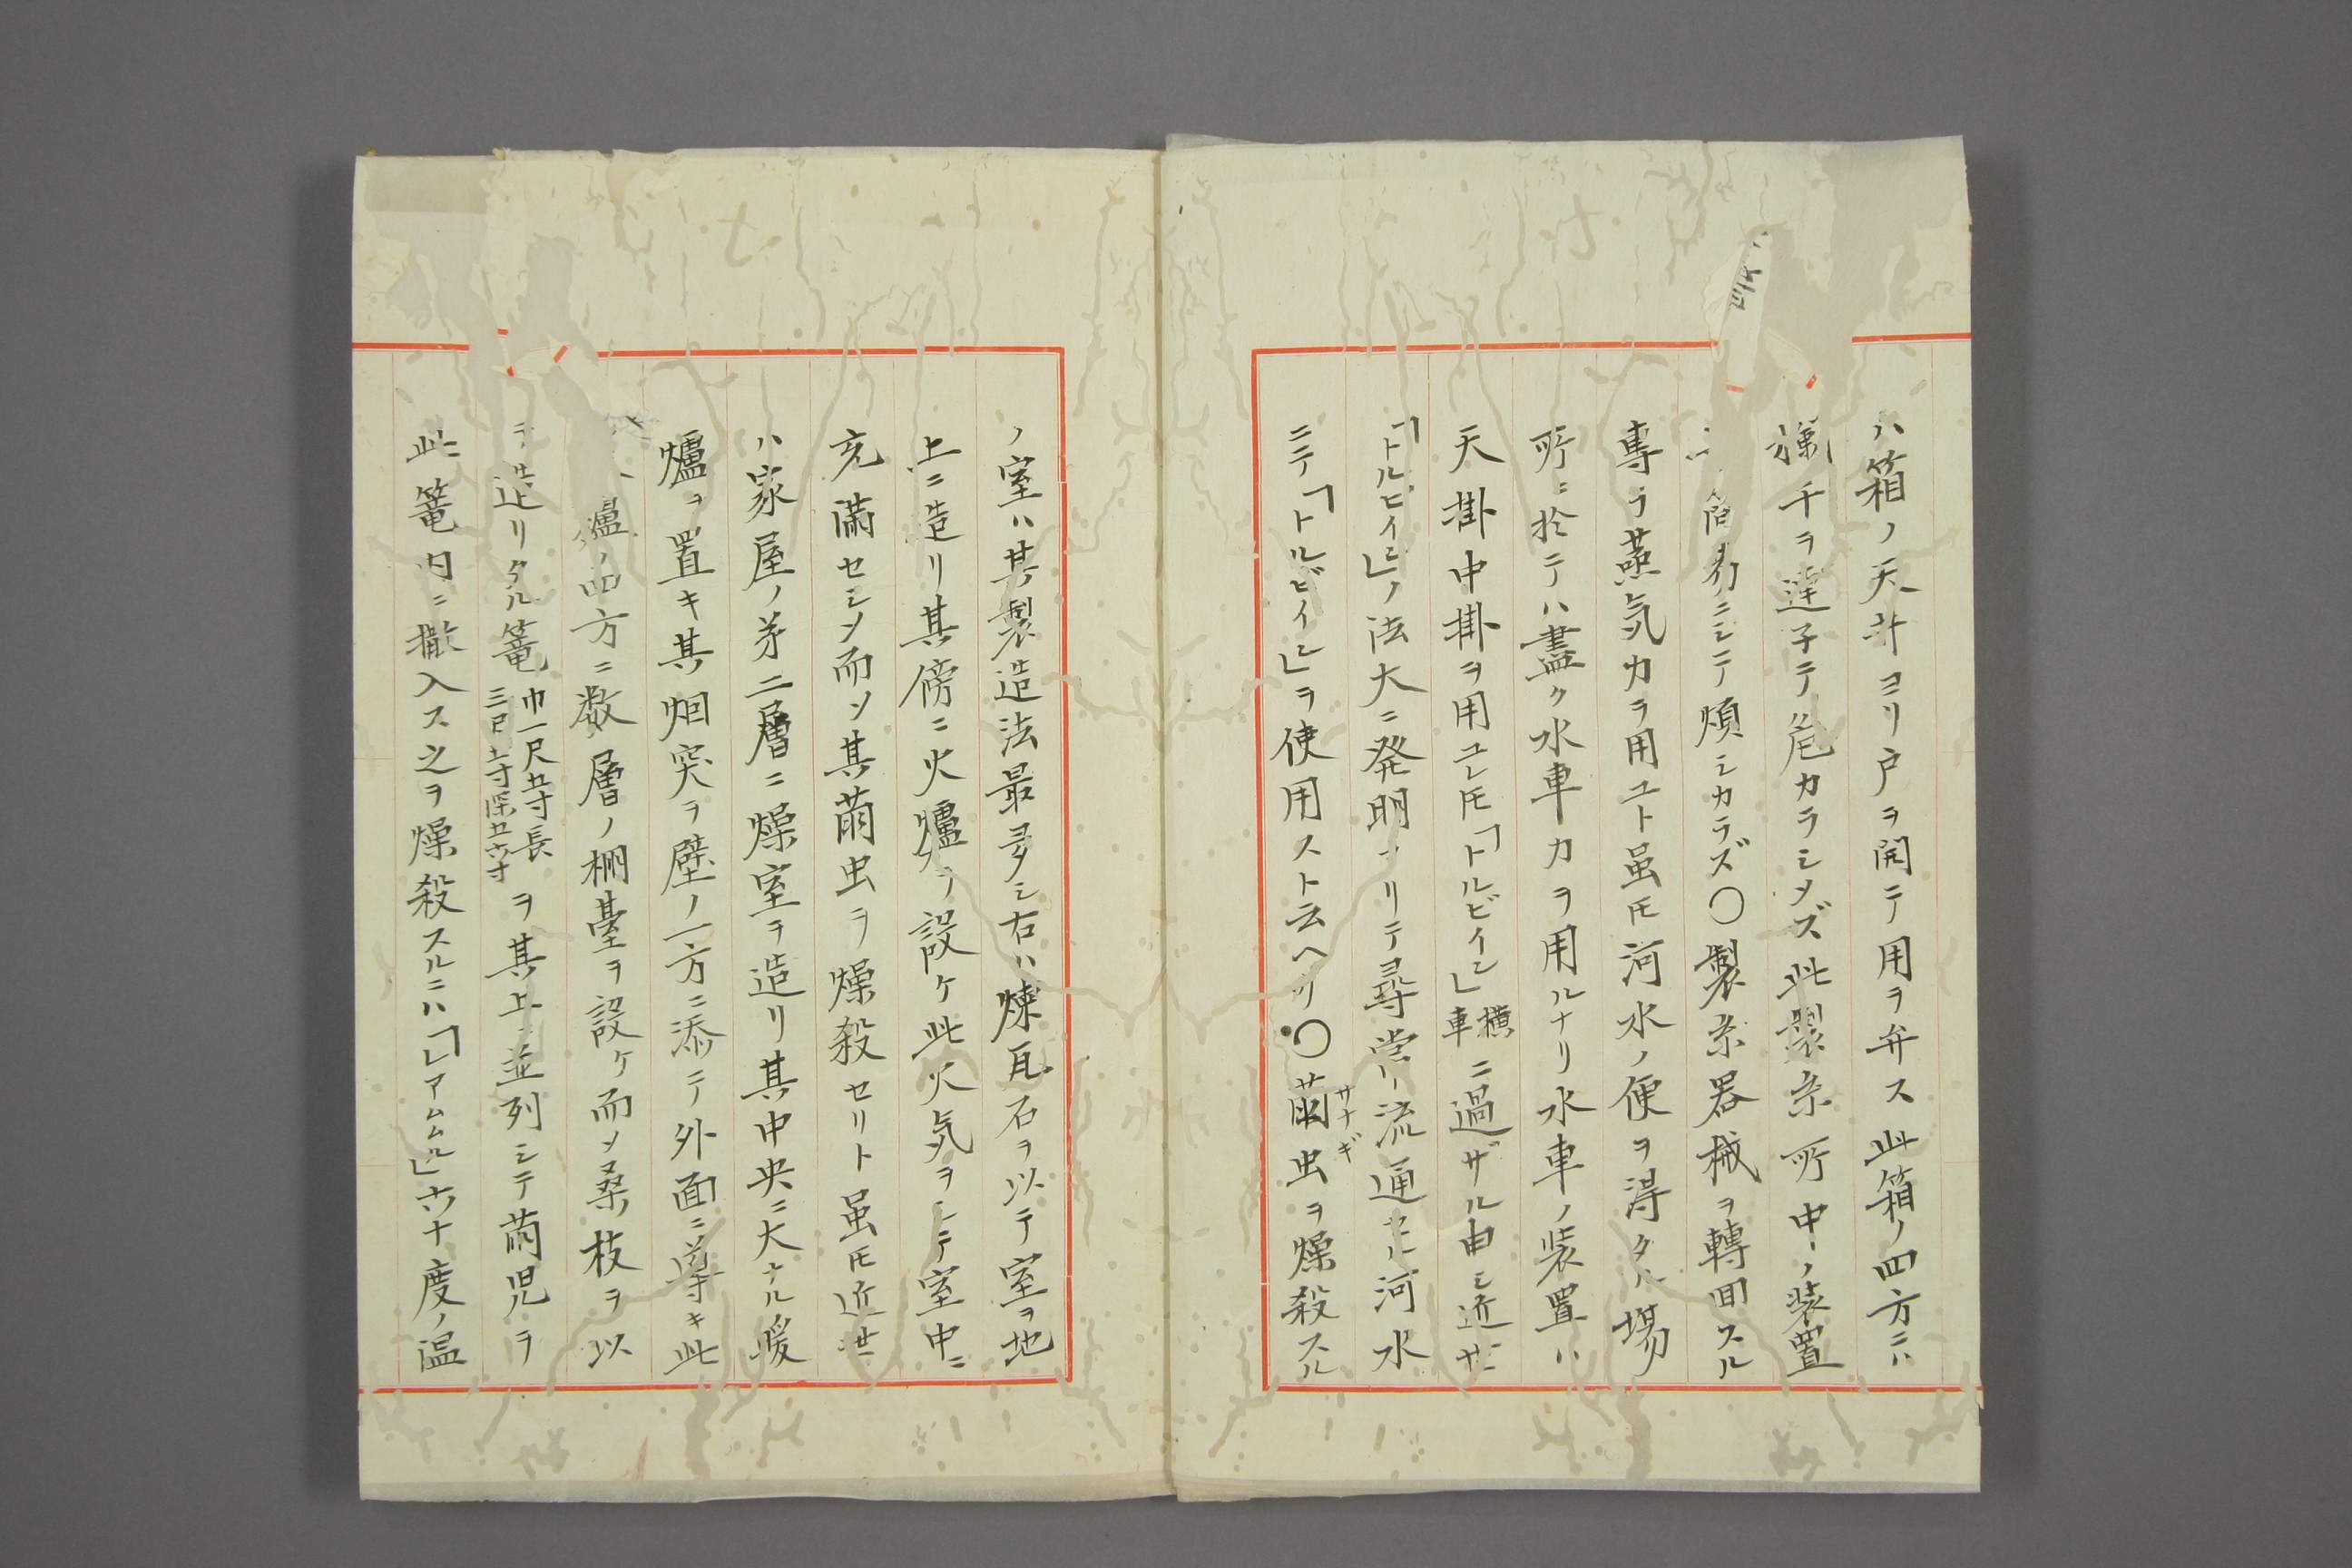 ハ箱ノ天井ヨリ戸ヲ開テ用ヲ弁ス此箱ノ四方ニハ
千ヲ達子テ危カラシメズ此製糸所中ノ装置
易ニシテ煩シカラズ〇製糸器械ヲ轉回スル
専ラ蒸気力ヲ用ユト虽𪜈河水ノ便ヲ得タル場
所ニ於テハ盡ク水車力ヲ用ルナリ水車ノ装置ハ
天掛中掛ヲ用ユレ𪜈「トルビイン」横車ニ過ザル由シ近世
「トルビイン」ノ法大ニ発明アリテ尋常ニ流通セル河水
ニテ「トルビイン」ヲ使用スト云ヘリ〇繭虫ヲ燥殺スル
サナギ
ノ室ハ其製造法最多シ右ハ煉瓦石ヲ以テ室ヲ地
上ニ造リ其傍ニ火爐ヲ設ケ此火気ヲシテ室中ニ
充満セシメ而メ其繭虫ヲ燥殺セリト虽𪜈近世
ハ家屋ノ第二層ニ燥室ヲ造リ其中央ニ大ナル煖
爐ヲ置キ其烟突ヲ壁ノ一方ニ添テ外面ニ導キ此
爐ノ四方ニ数層ノ棚臺ヲ設ケ而メ桑枝ヲ以
テ造リタル篭巾一尺五寸長三尺七寸深五六寸ヲ其上ニ並列シテ繭児ヲ
此篭内ニ撒入ス之ヲ燥殺スルニハ「レアムムル」六十度ノ温